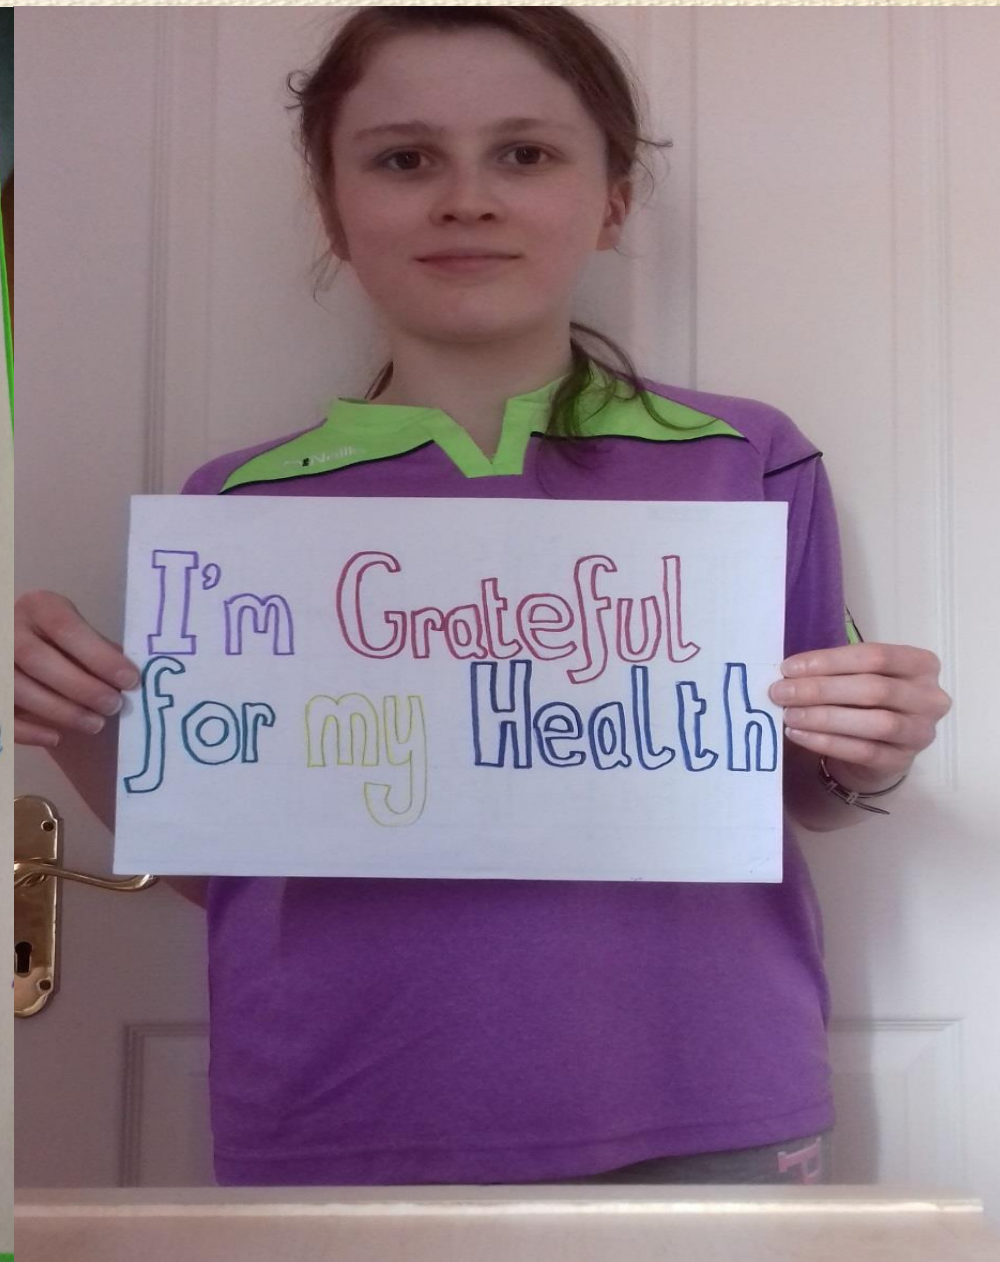 O'Neills
I'm Grateful
for my Health
P